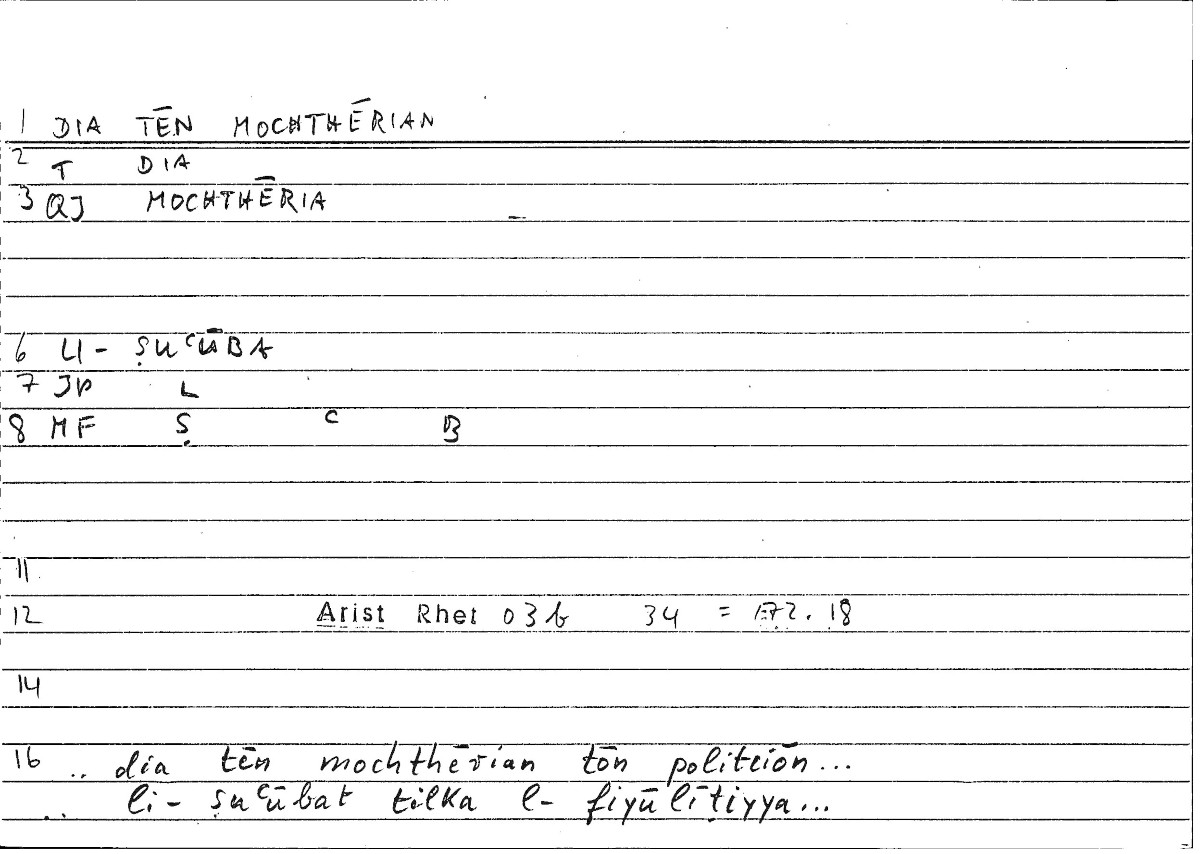 1 DIA TĒN MOCHTHĒRIAN
2 T DIA
3 QJ MOCHTHĒRIA
6 LI- ṢUʿŪBA
7 JP L
8 MF Ṣ ʿ B
11
12 Arist Rhet 03b 34 = 172.18
14
16 .. dia tēn mochthērian tōn politeiōn...
.. li- ṣuʿūbat tilka l- fiyūlīṭiyya...